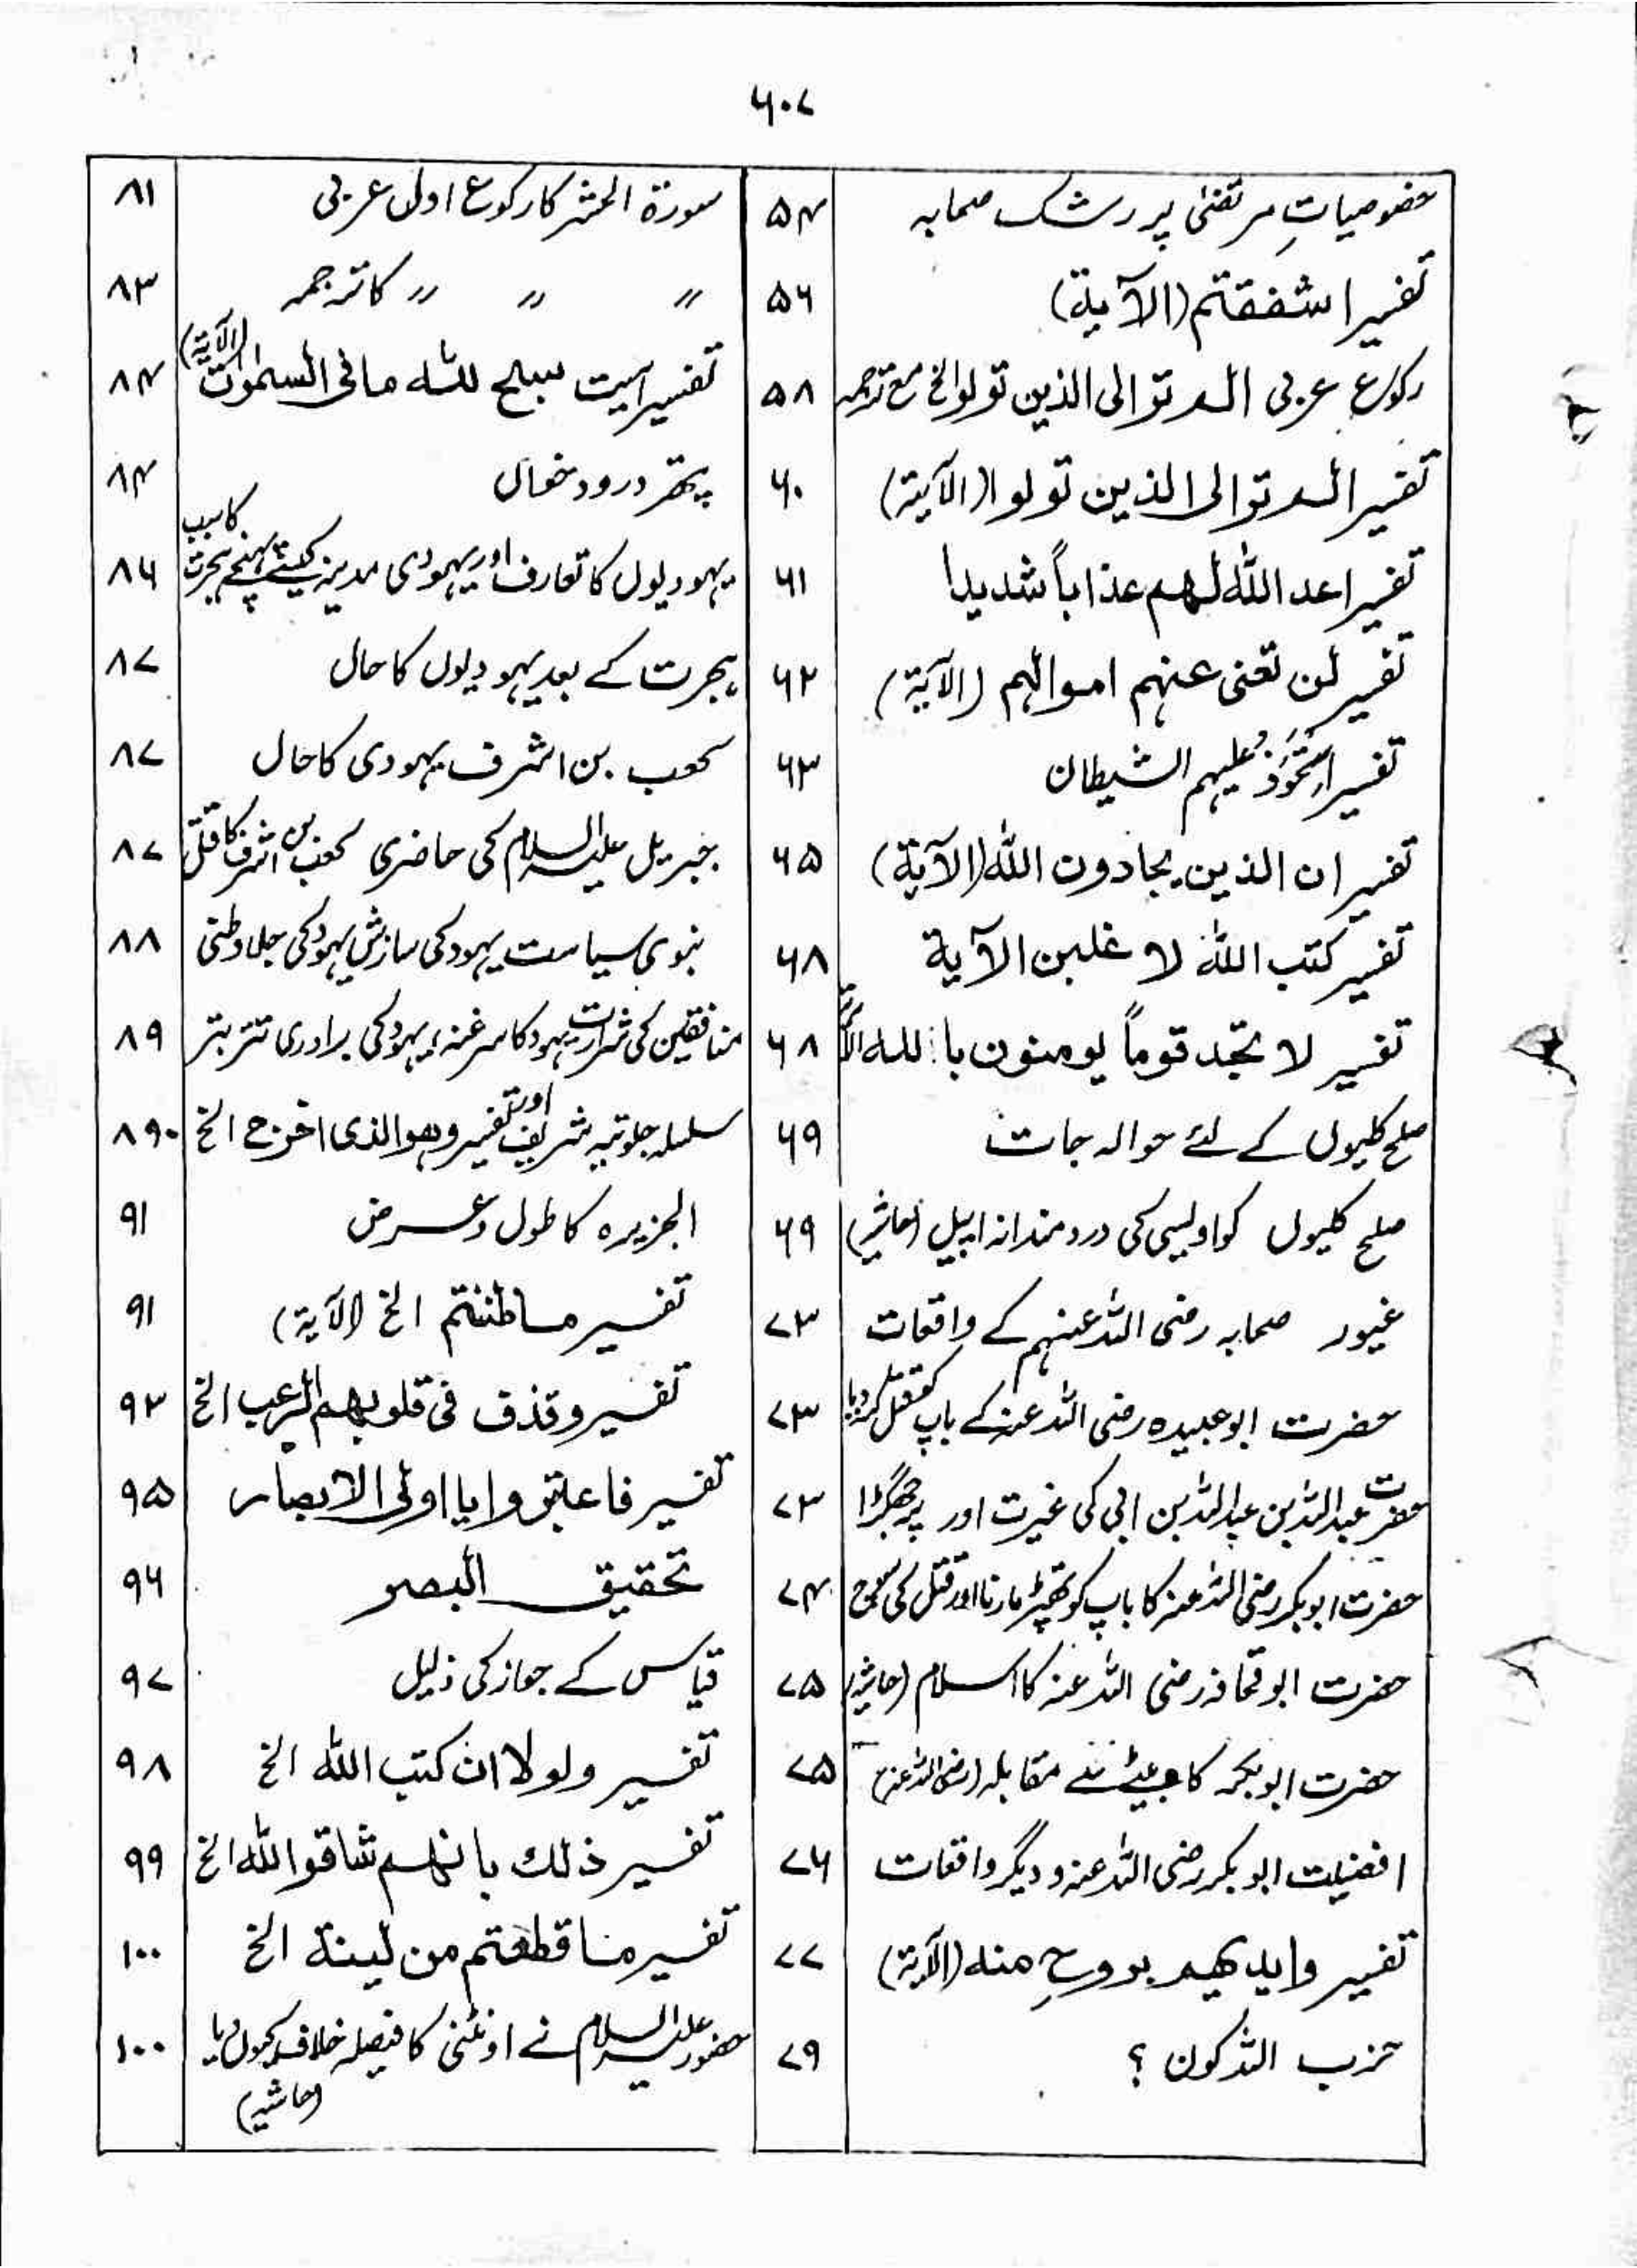 ۶۰۷
خصوصیاتِ مرتضیٰ پر رشک صحابہ ۵۴
تفسیر اشفقتم (الآیۃ) ۵۶
رکوع عربی الم تر الی الذین تولوا الخ مع ترجمہ ۵۸
تفسیر الم تر الی الذین تولوا (الآیۃ) ۶۰
تفسیر اعد اللہ لہم عذاباً شدیدا ۶۱
تفسیر لن تغنی عنہم اموالہم (الآیۃ) ۶۲
تفسیر اِستَحوَذَ علیہم الشیطان ۶۳
تفسیر ان الذین یحادون اللہ (الآیۃ) ۶۵
تفسیر کتب اللہ لا غلبن الآیۃ ۶۸
تفسیر لا تجد قوماً یومنون باللہ الآیۃ ۶۸
صلح کلیوں کے لئے حوالہ جات ۶۹
صلح کلیوں کو اویسی کی دردمندانہ اپیل (حاشیہ) ۶۹
غیور صحابہ رضی اللہ عنہم کے واقعات ۷۳
حضرت ابو عبیدہ رضی اللہ عنہ کے باپ کو قتل کر دیا ۷۳
حضرت عبد اللہ بن عبد اللہ بن ابی کی غیرت اور پر جھگڑا ۷۳
حضرت ابوبکر رضی اللہ عنہ کا باپ کو تھپڑ مارنا اور قتل کی سوچ ۷۴
حضرت ابو قحافہ رضی اللہ عنہ کا اسلام (حاشیہ) ۷۵
حضرت ابوبکر کا بیٹے سے مقابلہ (رضی اللہ عنہ) ۷۵
افضلیت ابوبکر رضی اللہ عنہ و دیگر واقعات ۷۶
تفسیر وایدہیم بروحِ منہ (الآیۃ) ۷۷
حزب اللہ کون ؟ ۷۹
سورۃ الحشر کا رکوع اول عربی ۸۱
〃 〃 〃 کا ترجمہ ۸۳
تفسیر آیت سبح للہ ما فی السمٰوٰت (الآیۃ) ۸۴
پتھر درود خواں ۸۴
یہودیوں کا تعارف اور یہودی مدینہ کیسے پہنچے ہجرت کا سبب ۸۶
ہجرت کے بعد یہودیوں کا حال ۸۷
کعب بن اشرف یہودی کا حال ۸۷
جبریل علیہ السلام کی حاضری کعب بن اشرف کا قتل ۸۷
نبوی سیاست یہود کی سازش یہود کی جلاوطنی ۸۸
منافقین کی شرارت یہود کا سرغنہ، یہود کی برادری تتر بتر ۸۹
سلسلہ جلوتیہ شریف اور تفسیر وھو الذی اخرج الخ ۸۹۰
الجزیرہ کا طول و عرض ۹۱
تفسیر ما ظننتم الخ (الآیۃ) ۹۱
تفسیر وقذف فی قلوبہم الرعب الخ ۹۳
تفسیر فاعتبروا یا اولی الابصار ۹۵
تحقیق البصر ۹۶
قیاس کے جواز کی دلیل ۹۷
تفسیر ولولا ان کتب اللہ الخ ۹۸
تفسیر ذلك بانہم شاقوا اللہ الخ ۹۹
تفسیر ما قطعتم من لینۃ الخ ۱۰۰
حضور علیہ السلام نے اونٹنی کا فیصلہ خلاف کیوں دیا (حاشیہ) ۱۰۰